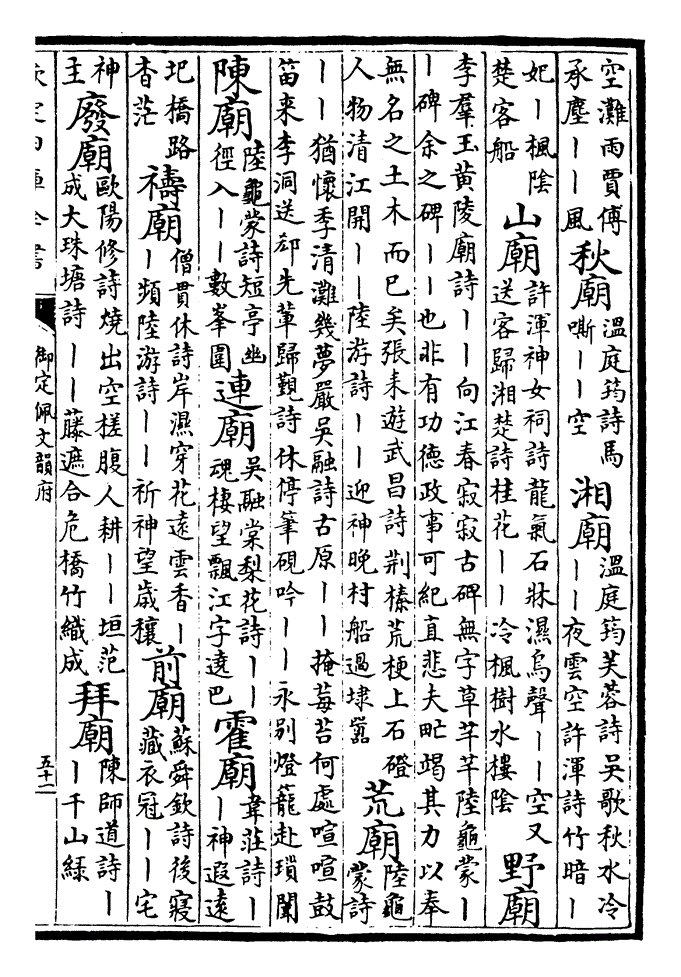 空灘雨賈傅
承塵丨丨風
秋廟
溫庭筠詩馬
嘶丨丨空
湘廟
溫庭筠芙蓉詩吳歌秋水冷
丨丨夜雲空許渾詩竹暗丨
妃丨楓陰
楚客船
山廟
許渾神女祠詩龍氣石牀濕鳥聲丨丨空又
送客歸湘楚詩桂花丨丨冷楓樹水樓陰
野廟
李羣玉黃陵廟詩丨丨向江春寂寂古碑無字草芊芊陸龜蒙丨
丨碑余之碑丨丨也非有功德政事可紀直悲夫甿竭其力以奉
無名之土木而已矣張耒遊武昌詩荆榛荒梗上石磴
人物清江開丨丨陸游詩丨丨迎神晚村船過埭嚚
荒廟
陸龜
蒙詩
丨丨猶懷季清灘幾夢嚴吳融詩古原丨丨掩莓苔何處喧喧鼓
笛来李洞送郄先輩歸覲詩休停筆硯吟丨丨永别燈籠赴瑣闈
陳廟
陸龜蒙詩短亭幽
徑入丨丨數峯圍
連廟
吳融棠梨花詩丨丨
魂棲望飄江字遶巴
霍廟
韋莊詩丨
丨神遐遠
圯橋路
杳茫
禱廟
僧貫休詩岸濕穿花遠雲香丨
丨頻陸游詩丨丨祈神望歲穰
前廟
蘇舜欽詩後寢
藏衣冠丨丨宅
神
主
廢廟
歐陽修詩燒出空槎腹人耕丨丨垣范
成大珠塘詩丨丨藤遮合危橋竹織成
拜廟
陳師道詩丨
丨千山緑
欽定四庫全書
御定佩文韻府
五十二